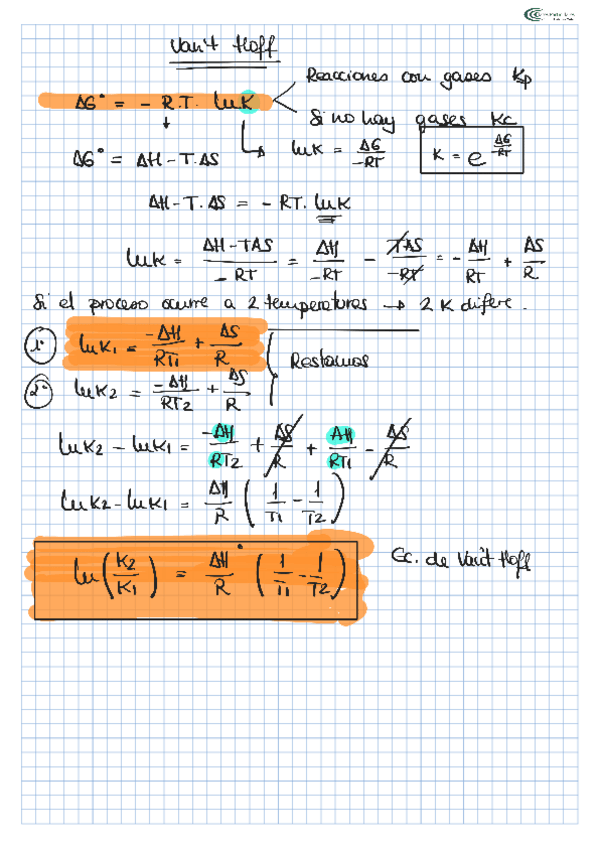 Van't Hoff
ΔG° = - R.T. lnK
Reacciones con gases Kp
Si no hay gases Kc
↓
ΔG° = ΔH - T.ΔS
lnK = ΔG / -RT
K = e^(ΔG / -RT)
ΔH - T.ΔS = - RT. lnK
lnK = (ΔH - TΔS) / -RT = ΔH / -RT - TΔS / -RT = - ΔH / RT + ΔS / R
Si el proceso ocurre a 2 temperaturas → 2 K difere.
1° lnK1 = -ΔH / RT1 + ΔS / R
Restamos
2° lnK2 = -ΔH / RT2 + ΔS / R
lnK2 - lnK1 = -ΔH / RT2 + ΔS / R + ΔH / RT1 - ΔS / R
lnK2 - lnK1 = ΔH / R (1 / T1 - 1 / T2)
ln(K2 / K1) = ΔH° / R (1 / T1 - 1 / T2)
Ec. de Van't Hoff